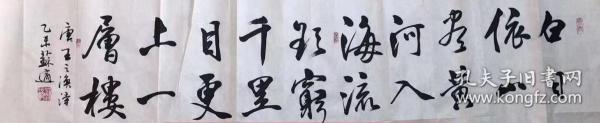 白日
依山
盡黃
河入
海流
欲窮
千里
目更
上一
層樓
唐王之渙詩
乙未蘇適
孔夫子旧书网
www.kongfz.com